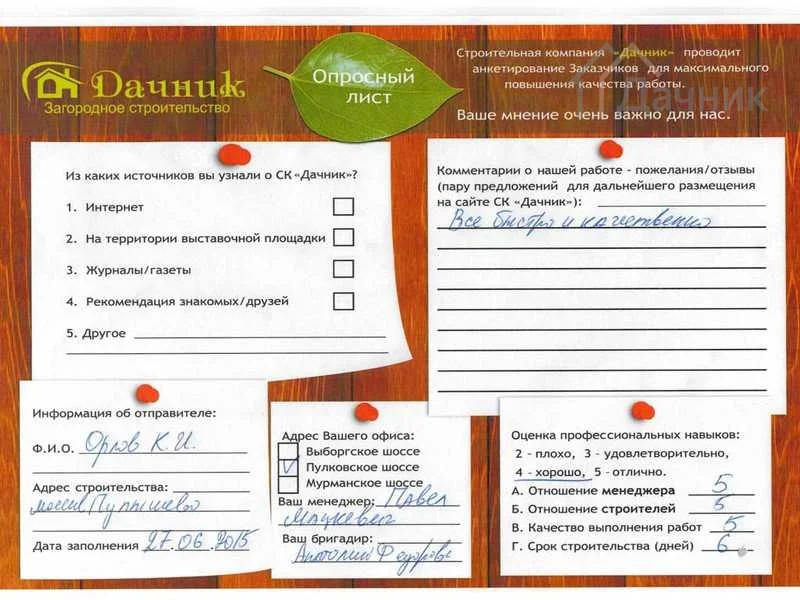 Дачник
Загородное строительство
Опросный
лист
Строительная компания «Дачник» проводит
анкетирование Заказчиков для максимального
повышения качества работы.
Ваше мнение очень важно для нас.
Дачник
Из каких источников вы узнали о СК «Дачник»?
1. Интернет
2. На территории выставочной площадки
3. Журналы/газеты
4. Рекомендация знакомых/друзей
5. Другое
Комментарии о нашей работе - пожелания/отзывы
(пару предложений для дальнейшего размещения
на сайте СК «Дачник»):
Все быстро и качественно
Информация об отправителе:
Ф.И.О. Орлов К.И.
Адрес строительства:
массив Пупышево
Дата заполнения 27.06.2015
Адрес Вашего офиса:
Выборгское шоссе
Пулковское шоссе
Мурманское шоссе
Ваш менеджер: Павел
Мацкевич
Ваш бригадир:
Анатолий Федорович
Оценка профессиональных навыков:
2 - плохо, 3 - удовлетворительно,
4 - хорошо, 5 - отлично.
А. Отношение менеджера 5
Б. Отношение строителей 5
В. Качество выполнения работ 5
Г. Срок строительства (дней) 6